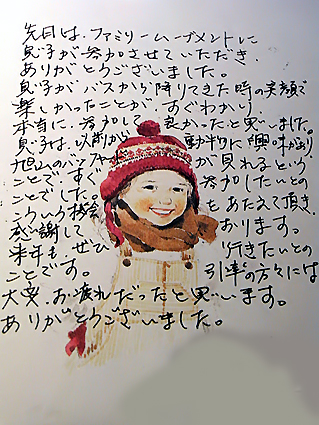 先日は、ファミリームーブメントに
息子が参加させていただき、
ありがとうございました。
息子が、バスから降りてきた時の笑顔で
楽しかったことが、すぐわかり、
本当に、参加して良かったと思いました。
息子は、以前から動物に興味があり
旭山のバックヤードが見れるという
ことで、すぐ参加したいとの
ことでした。
こういう機会もあたえて頂き、
感謝しております。
来年も、ぜひ行きたいとの
ことです。引率の方々には
大変、お疲れだったと思います。
ありがとうございました。